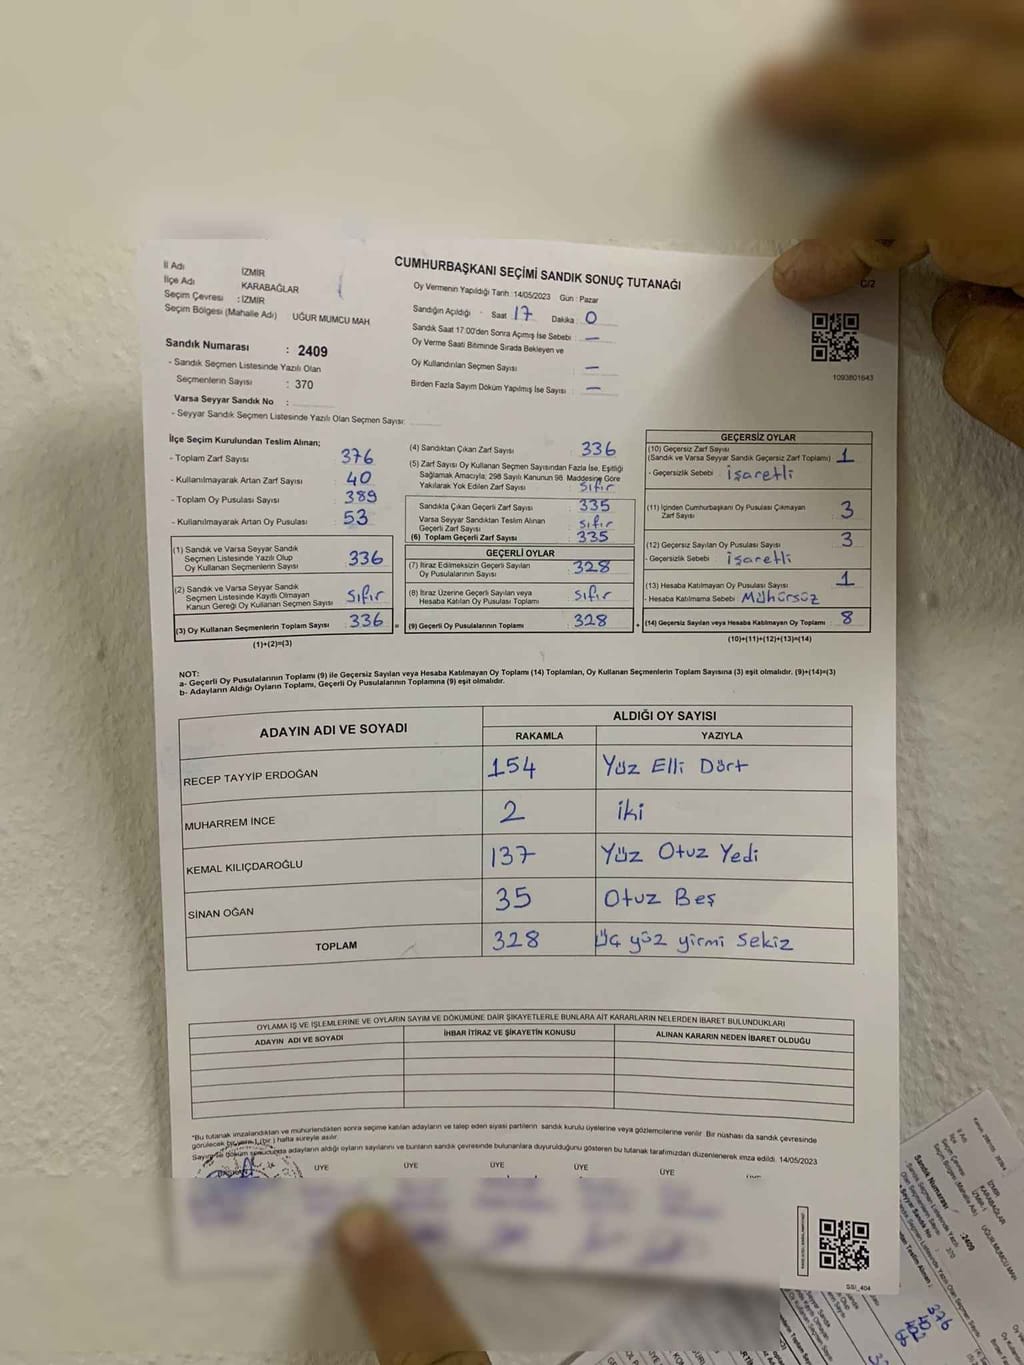 CUMHURBAŞKANI SEÇİMİ SANDIK SONUÇ TUTANAĞI
C/2
İl Adı İZMİR
İlçe Adı KARABAĞLAR
Seçim Çevresi : İZMİR
Seçim Bölgesi (Mahalle Adı) UĞUR MUMCU MAH
Sandık Numarası : 2409
- Sandık Seçmen Listesinde Yazılı Olan
Seçmenlerin Sayısı : 370
Varsa Seyyar Sandık No :
- Seyyar Sandık Seçmen Listesinde Yazılı Olan Seçmen Sayısı:
Oy Vermenin Yapıldığı Tarih : 14/05/2023 Gün : Pazar
Sandığın Açıldığı - Saat 17 Dakika : 0
Sandık Saat 17:00'den Sonra Açımış İse Sebebi : —
Oy Verme Saati Bitiminde Sırada Bekleyen ve
Oy Kullandırılan Seçmen Sayısı : —
Birden Fazla Sayım Döküm Yapılmış İse Sayısı : —
1093801643
İlçe Seçim Kurulundan Teslim Alınan;
- Toplam Zarf Sayısı : 376
- Kullanılmayarak Artan Zarf Sayısı : 40
- Toplam Oy Pusulası Sayısı : 389
- Kullanılmayarak Artan Oy Pusulası : 53
(1) Sandık ve Varsa Seyyar Sandık
Seçmen Listesinde Yazılı Olup
Oy Kullanan Seçmenlerin Sayısı : 336
(2) Sandık ve Varsa Seyyar Sandık
Seçmen Listesinde Kayıtlı Olmayan
Kanun Gereği Oy Kullanan Seçmen Sayısı : sıfır
(3) Oy Kullanan Seçmenlerin Toplam Sayısı : 336 =
(1)+(2)=(3)
(4) Sandıktan Çıkan Zarf Sayısı : 336
(5) Zarf Sayısı Oy Kullanan Seçmen Sayısından Fazla İse, Eşitliği
Sağlamak Amacıyla, 298 Sayılı Kanunun 98. Maddesine Göre
Yakılarak Yok Edilen Zarf Sayısı : sıfır
Sandıkta Çıkan Geçerli Zarf Sayısı : 335
Varsa Seyyar Sandıktan Teslim Alınan
Geçerli Zarf Sayısı : sıfır
(6) Toplam Geçerli Zarf Sayısı : 335
GEÇERLİ OYLAR
(7) İtiraz Edilmeksizin Geçerli Sayılan
Oy Pusulalarının Sayısı : 328
(8) İtiraz Üzerine Geçerli Sayılan veya
Hesaba Katılan Oy Pusulası Toplamı : sıfır
(9) Geçerli Oy Pusulalarının Toplamı : 328 +
GEÇERSİZ OYLAR
(10) Geçersiz Zarf Sayısı
(Sandık ve Varsa Seyyar Sandık Geçersiz Zarf Toplamı) : 1
- Geçersizlik Sebebi : işaretli
(11) İçinden Cumhurbaşkanı Oy Pusulası Çıkmayan
Zarf Sayısı : 3
(12) Geçersiz Sayılan Oy Pusulası Sayısı : 3
- Geçersizlik Sebebi : işaretli
(13) Hesaba Katılmayan Oy Pusulası Sayısı : 1
- Hesaba Katılmama Sebebi : Mühürsüz
(14) Geçersiz Sayılan veya Hesaba Katılmayan Oy Toplamı : 8
(10)+(11)+(12)+(13)=(14)
NOT:
a- Geçerli Oy Pusulalarının Toplamı (9) ile Geçersiz Sayılan veya Hesaba Katılmayan Oy Toplamı (14) Toplamları, Oy Kullanan Seçmenlerin Toplam Sayısına (3) eşit olmalıdır. (9)+(14)=(3)
b- Adayların Aldığı Oyların Toplamı, Geçerli Oy Pusulalarının Toplamına (9) eşit olmalıdır.
ADAYIN ADI VE SOYADI ALDIĞI OY SAYISI
RAKAMLA YAZIYLA
RECEP TAYYİP ERDOĞAN 154 Yüz Elli Dört
MUHARREM İNCE 2 iki
KEMAL KILIÇDAROĞLU 137 Yüz Otuz Yedi
SİNAN OĞAN 35 Otuz Beş
TOPLAM 328 Üç yüz yirmi sekiz
OYLAMA İŞ VE İŞLEMLERİNE VE OYLARIN SAYIM VE DÖKÜMÜNE DAİR ŞİKAYETLERLE BUNLARA AİT KARARLARIN NELERDEN İBARET BULUNDUKLARI
ADAYIN ADI VE SOYADI İHBAR İTİRAZ VE ŞİKAYETİN KONUSU ALINAN KARARIN NEDEN İBARET OLDUĞU
*Bu tutanak imzalandıktan ve mühürlendikten sonra seçime katılan adayların ve talep eden siyasi partilerin sandık kurulu üyelerine veya gözlemcilerine verilir. Bir nüshası da sandık çevresinde
görülecek bir yere 1 (bir) hafta süreyle asılır.
Sayım ve döküm sonucunda adayların aldığı oyların sayılarını ve bunların sandık çevresinde bulunanlara duyurulduğunu gösteren bu tutanak tarafımızdan düzenlenerek imza edildi. 14/05/2023
BAŞKAN ÜYE ÜYE ÜYE ÜYE ÜYE
SSİ_404
İZMİR
KARABAĞLAR
İZMİR-1
UĞUR MUMCU MAH
Sandık Numarası : 2409
370
376